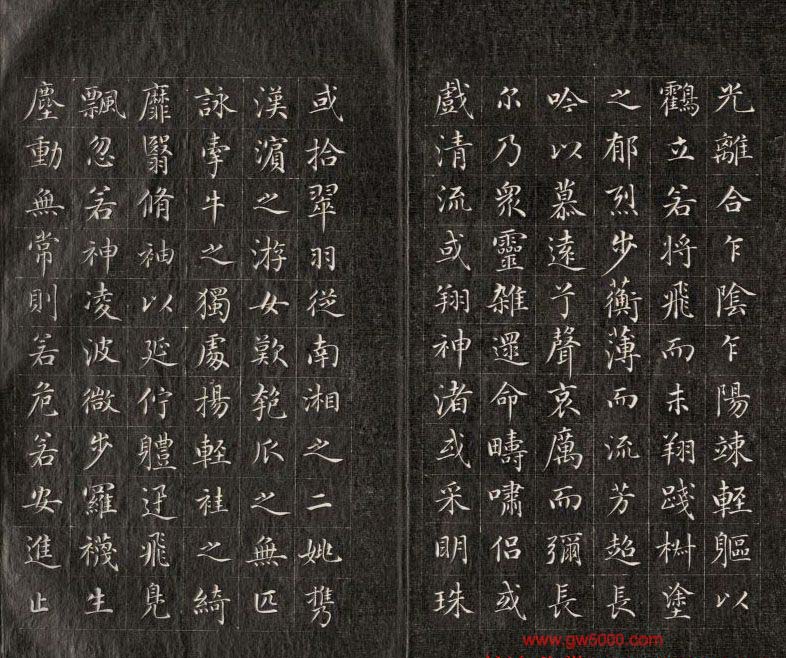 光離合乍陰乍陽竦輕軀以
鸖立若将飛而未翔踐椒塗
之郁烈步蘅薄而流芳超長
吟以慕遠兮聲哀厲而彌長
尒乃衆靈雜遝命疇嘯侶或
戲清流或翔神渚或采明珠
或拾翠羽從南湘之二姚携
漢濱之游女歎匏瓜之無匹
詠牽牛之獨處揚輕袿之綺
靡翳脩袖以延佇軆迅飛鳧
飄忽若神凌波微步羅襪生
塵動無常則若危若安進止
www.gw6000.com